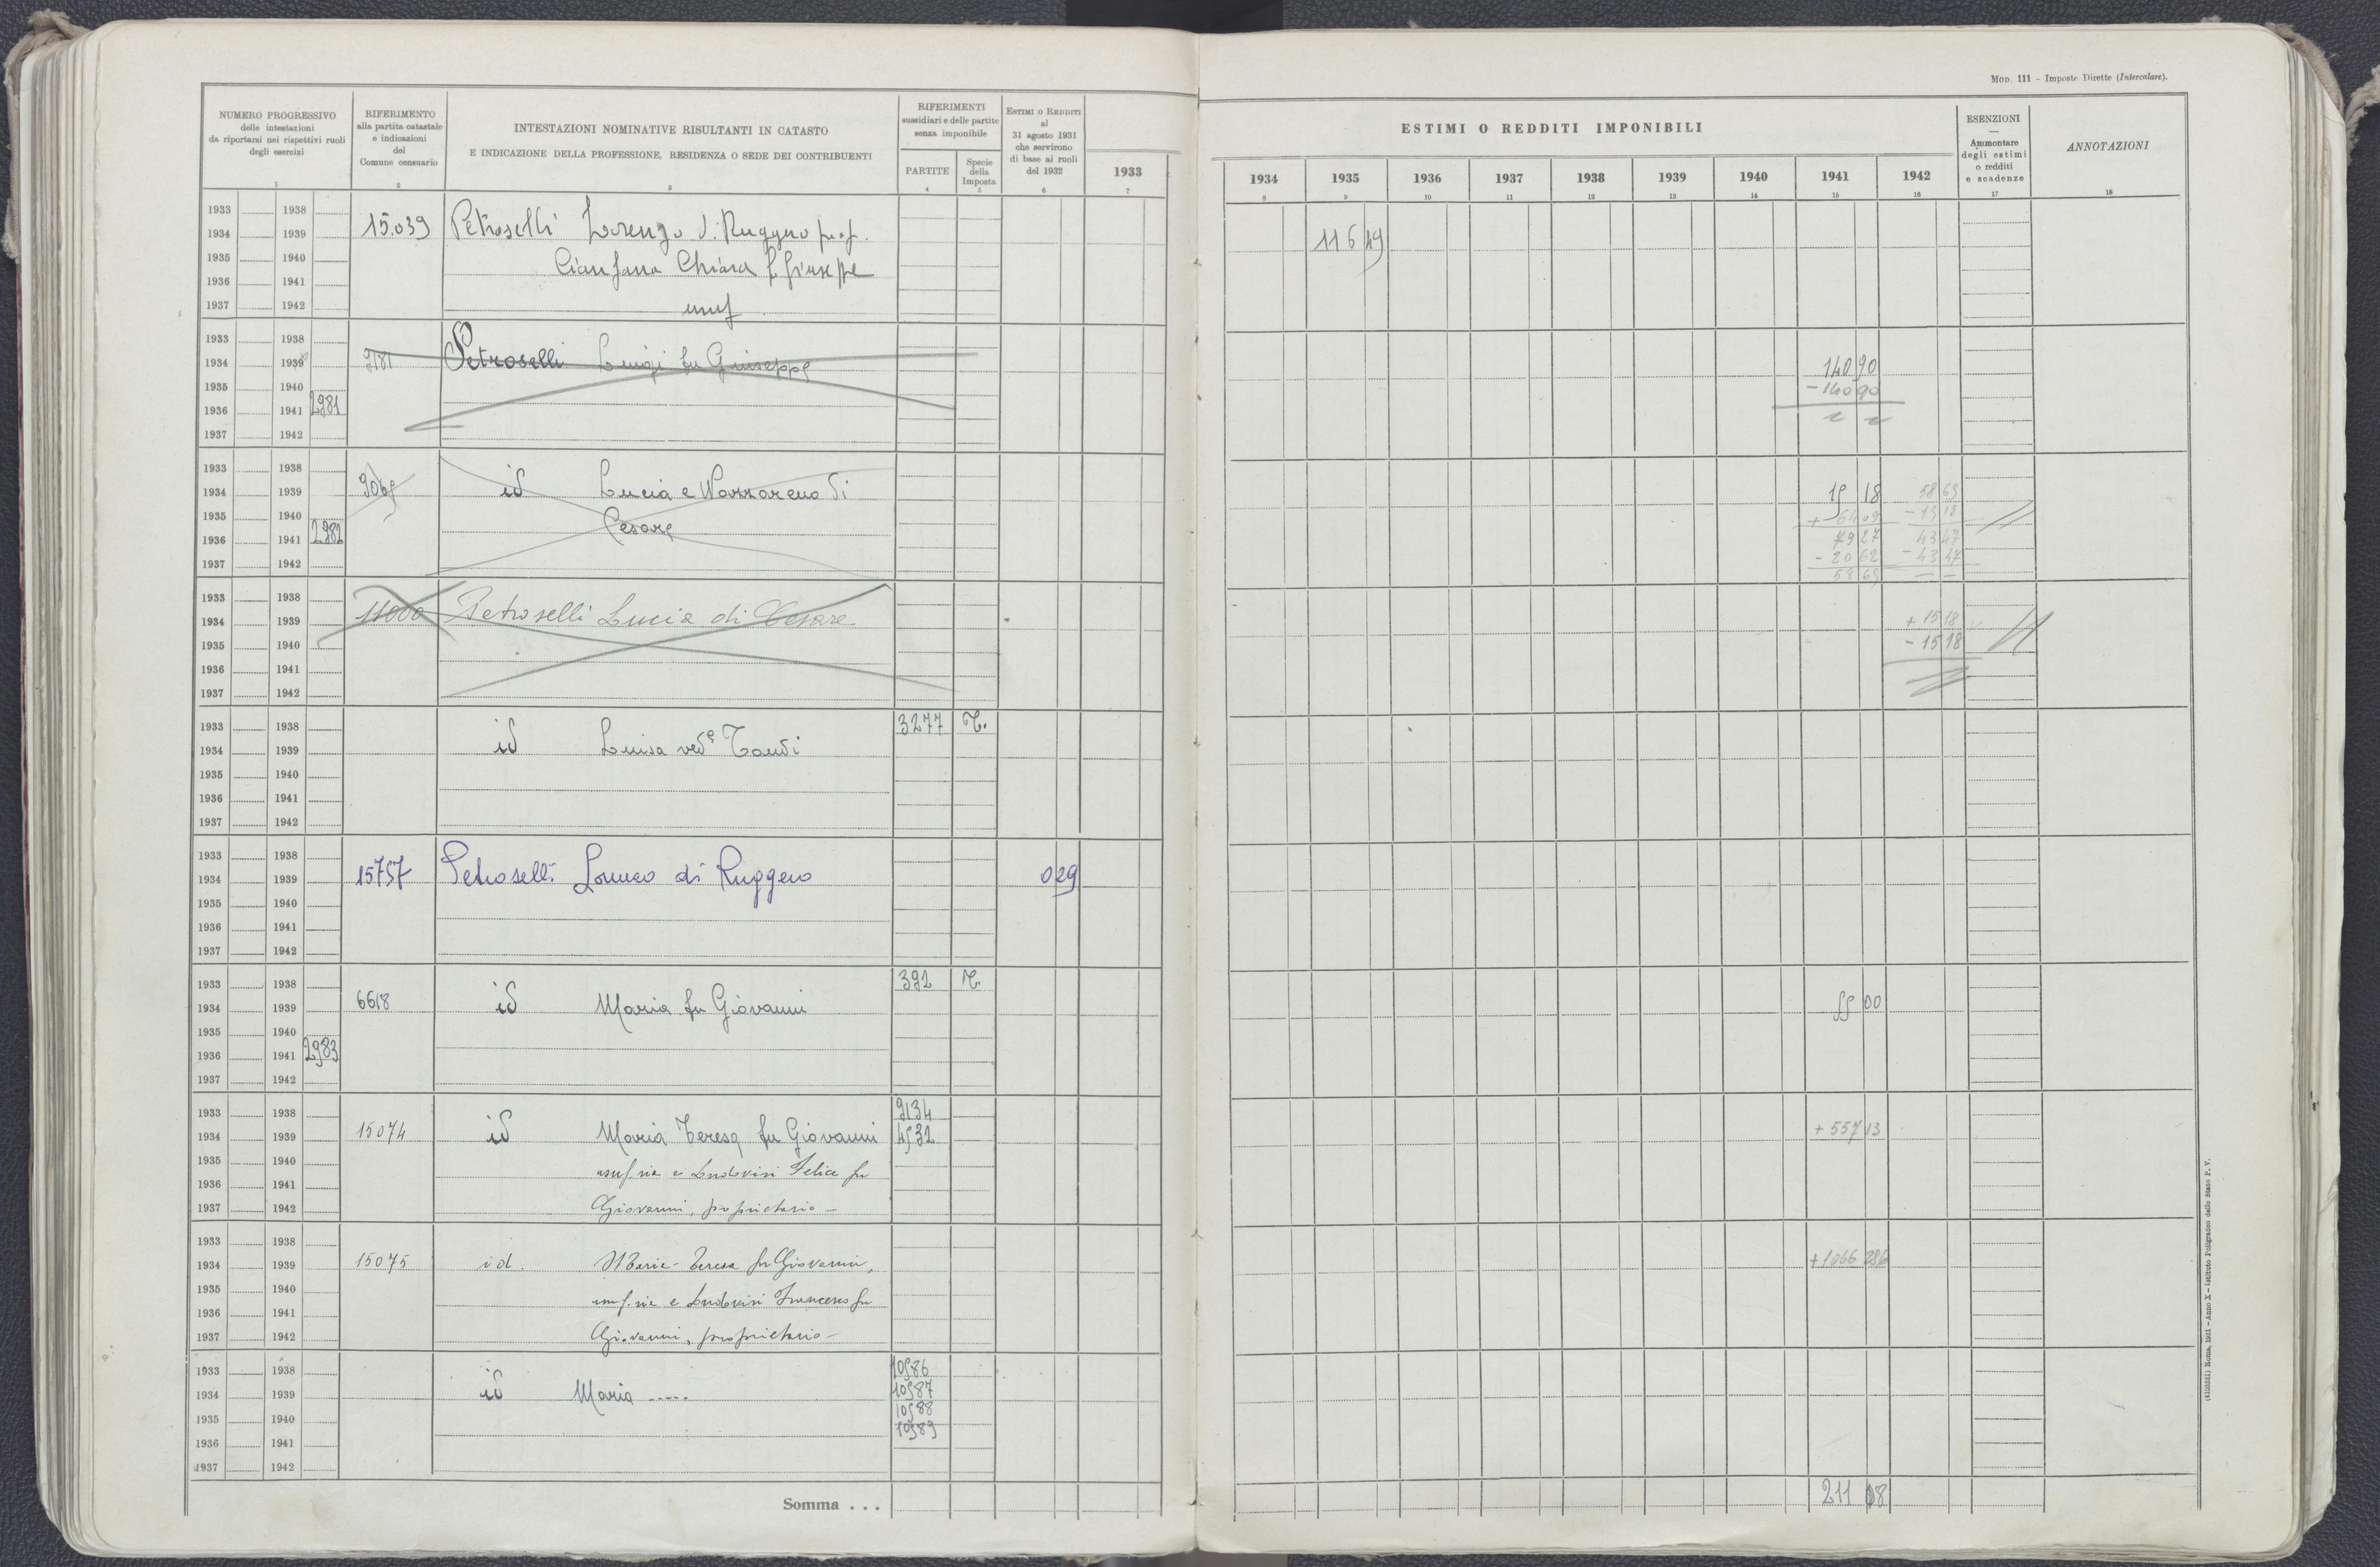 MOD. 111 - Imposte Dirette (Intercalare).
NUMERO PROGRESSIVO
delle intestazioni
da riportarsi nei rispettivi ruoli
degli esercizi
1
RIFERIMENTO
alla partita catastale
e indicazioni
del
Comune censuario
2
INTESTAZIONI NOMINATIVE RISULTANTI IN CATASTO
E INDICAZIONE DELLA PROFESSIONE, RESIDENZA O SEDE DEI CONTRIBUENTI
3
RIFERIMENTI
sussidiari e delle partite
senza imponibile
PARTITE
4
Specie
della
Imposta
5
ESTIMI O REDDITI
al
31 agosto 1931
che servirono
di base ai ruoli
del 1932
6
1933
7
ESTIMI O REDDITI IMPONIBILI
1934 1935 1936 1937 1938 1939 1940 1941 1942
8 9 10 11 12 13 14 15 16
ESENZIONI
Ammontare
degli estimi
o redditi
e scadenze
17
ANNOTAZIONI
18
1933 1938
1934 1939 15.039 Petroselli Lorenzo d. Ruggero prop. 116 49
1935 1940 Chiara f. Giuseppe
1936 1941
1937 1942 usuf
1933 1938
1934 1939 9181 Petroselli Luigi fu Giuseppe 140 90
1935 1940 - 140 90
1936 1941 2981
1937 1942
1933 1938
1934 1939 id Lucia e Nazzareno di 15 18 58 65
1935 1940 Cesare + 64 09 - 15 18
1936 1941 2982 79 27 43 47
1937 1942 - 20 62 - 43 47
58 65 — —
1933 1938
1934 1939 11000 Petroselli Lucia di Cesare + 15 18
1935 1940 - 15 18
1936 1941
1937 1942
1933 1938 3277 T.
1934 1939 id Luisa ved.
1935 1940
1936 1941
1937 1942
1933 1938
1934 1939 15757 Petroselli di Ruggero 0 29
1935 1940
1936 1941
1937 1942
1933 1938 392 T.
1934 1939 6618 id Maria fu Giovanni 55 00
1935 1940
1936 1941 2983
1937 1942
1933 1938 9134
1934 1939 15074 id Maria Teresa fu Giovanni 4532 + 557 13
1935 1940 usuf.ria e Ludovisi Felice fu
1936 1941
1937 1942 Giovanni, proprietario -
1933 1938
1934 1939 15075 id. Maria-Teresa fu Giovanni, + 1066 286
1935 1940 usuf.ria e Ludovisi Francesco fu
1936 1941
1937 1942 Giovanni, proprietario -
1933 1938 10586
1934 1939 id Maria ..... 10587
1935 1940 10588
1936 1941 10589
1937 1942
Somma . . . 211 08
(4103531) Roma, 1931 - Anno X - Istituto Poligrafico dello Stato P. V.